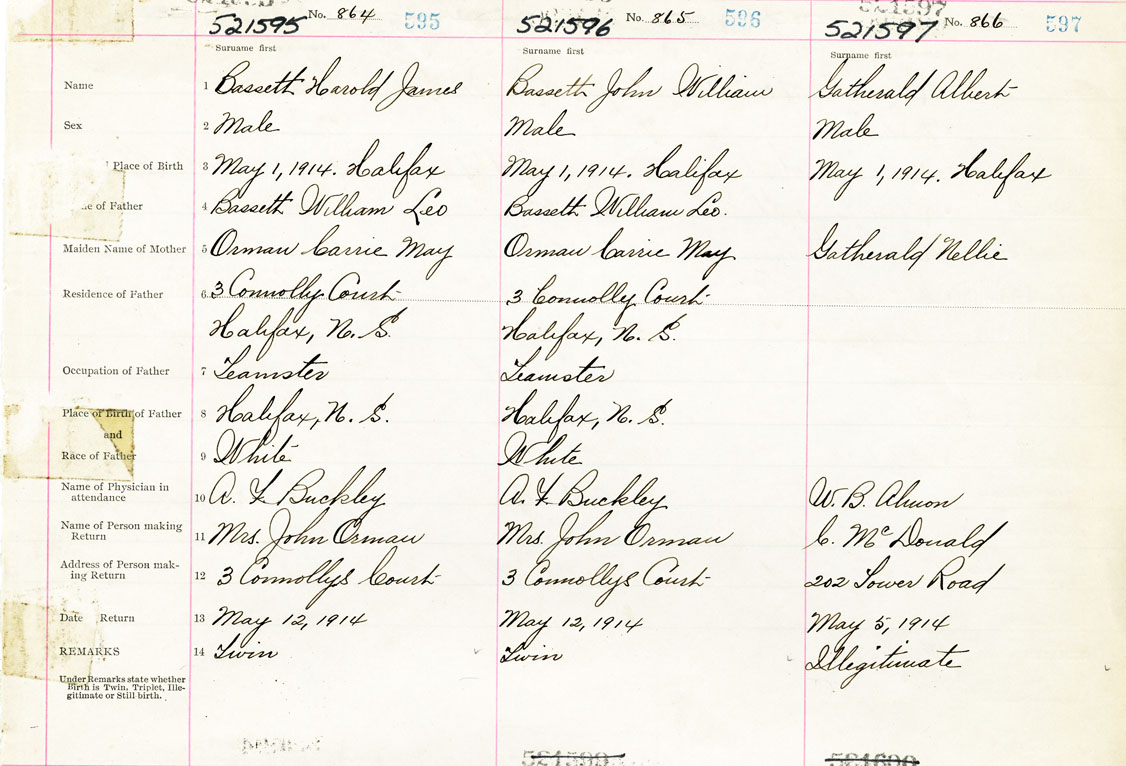 521595 No. 864 595
521596 No. 865 596
521597 No. 866 597
Surname first Surname first Surname first
Name 1 Bassett Harold James Bassett John William Gatherald Albert
Sex 2 Male Male Male
Place of Birth 3 May 1, 1914. Halifax May 1, 1914. Halifax May 1, 1914. Halifax
of Father 4 Bassett William Leo Bassett William Leo.
Maiden Name of Mother 5 Orman Carrie May Orman Carrie May Gatherald Nellie
Residence of Father 6 3 Connolly Court 3 Connolly Court
Halifax, N. S. Halifax, N. S.
Occupation of Father 7 Teamster Teamster
Place of Birth of Father 8 Halifax, N. S. Halifax, N. S.
and
Race of Father 9 White White
Name of Physician in
attendance 10 A. F. Buckley A. F. Buckley W. B. Almon
Name of Person making
Return 11 Mrs. John Orman Mrs. John Orman C. McDonald
Address of Person mak-
ing Return 12 3 Connollys Court 3 Connollys Court 202 Tower Road
Date Return 13 May 12, 1914 May 12, 1914 May 5, 1914
REMARKS 14 Twin Twin Illegitimate
Under Remarks state whether
Birth is Twin, Triplet, Ille-
gitimate or Still birth.
521599 521600